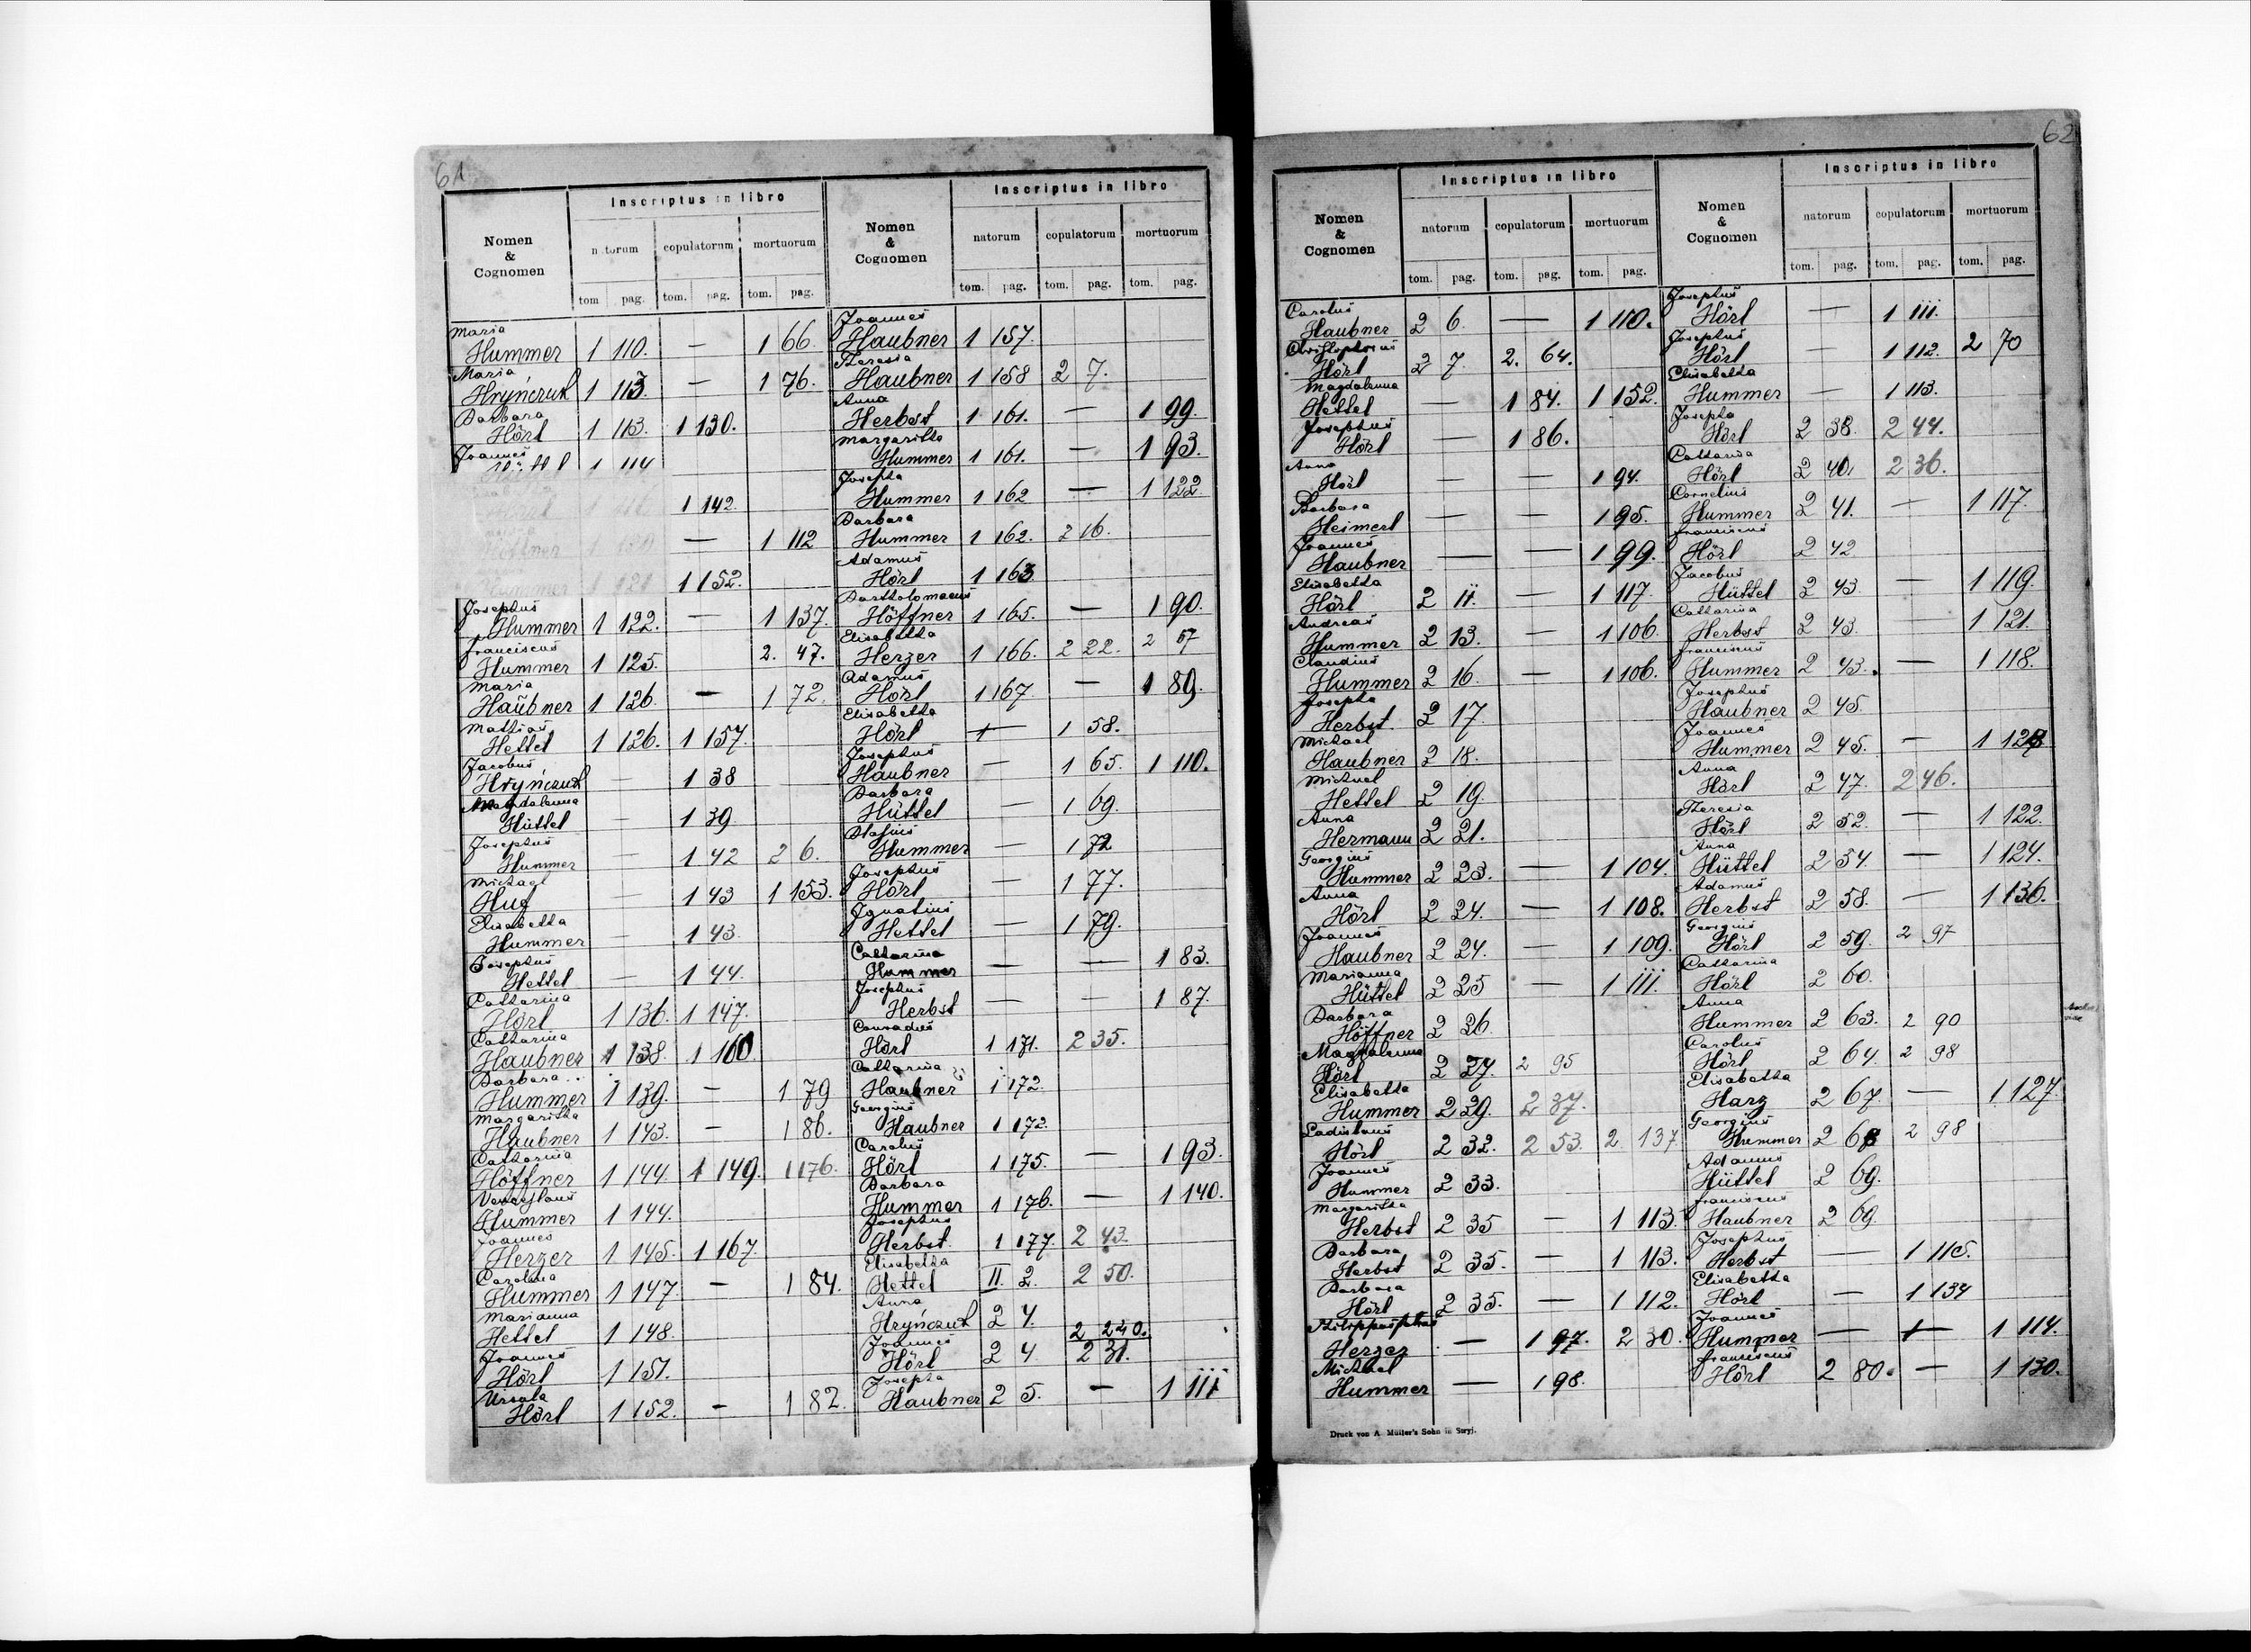 61
Nomen & Cognomen
Inscriptus in libro
natorum copulatorum mortuorum
tom. pag. tom. pag. tom. pag.
Maria
Hummer 1 110. — 1 66.
Maria
Hryńczuk 1 113 — 1 76.
Barbara
Hörl 1 113. 1 130.
Joannes
1 114
1 142.
Höffner — 1 112
Hummer 1 121 1 152.
Josephus
Hummer 1 122. — 1 137.
Franciscus
Hummer 1 125. 2. 47.
Maria
Haübner 1 126. — 1 72.
Mathias
Hettel 1 126. 1 157.
Jacobus
Hryńczuk — 1 38
Magdalenna
Hüttel — 1 39
Josephus
Hummer — 1 42 2 6.
Michael
Hug — 1 43 1 153.
Elisabetha
Hummer — 1 43.
Josephus
Hettel — 1 44.
Catharina
Hörl 1 136. 1 147.
Catharina
Haubner 1 138. 1 160
Barbara
Hummer 1 139. — 1 79
Margaritha
Haubner 1 143. — 1 86.
Catharina
Höffner 1 144. 1 149. 1 176.
Venceslaus
Hummer 1 144.
Joannes
Herzer 1 145. 1 167.
Carolina
Hummer 1 147. — 1 84.
Marianna
Hettel 1 148.
Joannes
Hörl 1 151.
Ursula
Hörl 1 152. — 1 82.
Nomen & Cognomen
Inscriptus in libro
natorum copulatorum mortuorum
tom. pag. tom. pag. tom. pag.
Joannes
Haubner 1 157.
Theresia
Haubner 1 158 2 7.
Anna
Herbst 1 161. — 1 99.
Margaritha
Hummer 1 161. — 1 93.
Josepha
Hummer 1 162 — 1 122
Barbara
Hummer 1 162. 2 16.
Adamus
Hörl 1 163
Bartholomaeus
Höffner 1 165. — 1 90.
Elisabetha
Herzer 1 166. 2 22. 2 57
Adamus
Hörl 1 167. — 1 89.
Elisabetha
Hörl — 1 58.
Josephus
Haubner — 1 65. 1 110.
Barbara
Hüttel — 1 69.
Hummer — 1 72
Josephus
Hörl — 1 77.
Ignatius
Hettel — 1 79.
Catharina
Hummer — — 1 83.
Josephus
Herbst — — 1 87.
Conradus
Hörl 1 171. 2 35.
Catharina
Haubner 1 172.
Georgius
Haubner 1 172.
Carolus
Hörl 1 175. — 1 93.
Barbara
Hummer 1 176. — 1 140.
Josephus
Herbst 1 177. 2 43.
Elisabetha
Hettel II. 2. 2 50.
Anna
Hryńczuk 2 4.
2 240.
Joannes
Hörl 2 4 2 31.
Josepha
Haubner 2 5. — 1 111
62
Nomen & Cognomen
Inscriptus in libro
natorum copulatorum mortuorum
tom. pag. tom. pag. tom. pag.
Carolus
Haubner 2 6. — 1 110.
Christophorus
Hörl 2 7. 2. 64.
Magdalenna
Hettel — 1 84. 1 152.
Josephus
Hörl — 1 86.
Anna
Hörl — — 1 94.
Barbara
Heimerl — — 1 95.
Joannes
Haubner — — 1 99.
Elisabetha
Hörl 2 11. — 1 117.
Andreas
Hummer 2 13. — 1 106.
Claudius
Hummer 2 16. — 1 106.
Josepha
Herbst 2 17.
Michael
Haubner 2 18.
Michael
Hettel 2 19.
Anna
Hermann 2 21.
Georgius
Hummer 2 23. — 1 104.
Anna
Hörl 2 24. — 1 108.
Joannes
Haubner 2 24. — 1 109.
Marianna
Hüttel 2 25 — 1 111.
Barbara
Höffner 2 26
Magdalenna
Hörl 2 27. 2 95
Elisabetha
Hummer 2 29. 2 37.
Ladislaus
Hörl 2 32. 2 53. 2 137
Joannes
Hummer 2 33.
Margaritha
Herbst 2 35 — 1 113.
Barbara
Herbst 2 35. — 1 113.
Barbara
Hörl 2 35. — 1 112.
Herzer — 1 97. 2 30.
Michael
Hummer — 1 98.
Nomen & Cognomen
Inscriptus in libro
natorum copulatorum mortuorum
tom. pag. tom. pag. tom. pag.
Josephus
Hörl — 1 111.
Josephus
Hörl — 1 112. 2 70
Elisabetha
Hummer — 1 113.
Josepha
Hörl 2 38. 2 44.
Catharina
Hörl 2 40. 2 36.
Cornelius
Hummer 2 41. — 1 117.
Franciscus
Hörl 2 42
Jacobus
Hüttel 2 43. — 1 119.
Catharina
Herbst 2 43. — 1 121.
Franciscus
Hummer 2 43. — 1 118.
Josephus
Haubner 2 45.
Joannes
Hummer 2 45. — 1 128
Anna
Hörl 2 47. 2 46.
Theresia
Hörl 2 52. — 1 122.
Anna
Hüttel 2 54 — 1 124.
Adamus
Herbst 2 58. — 1 136.
Georgius
Hörl 2 59. 2 97
Catharina
Hörl 2 60.
Anna
Hummer 2 63. 2 90
Carolus
Hörl 2 64. 2 98
Elisabetha
Harz 2 67. — 1 127.
Georgius
Hummer 2 68 2 98
Adamus
Hüttel 2 69.
Franciscus
Haubner 2 69
Josephus
Herbst — 1 115.
Elisabetha
Hörl — 1 134
Joannes
Hummer — — 1 114.
Franciscus
Hörl 2 80. — 1 130.
Druck von A. Müller's Sohn in Stryj.